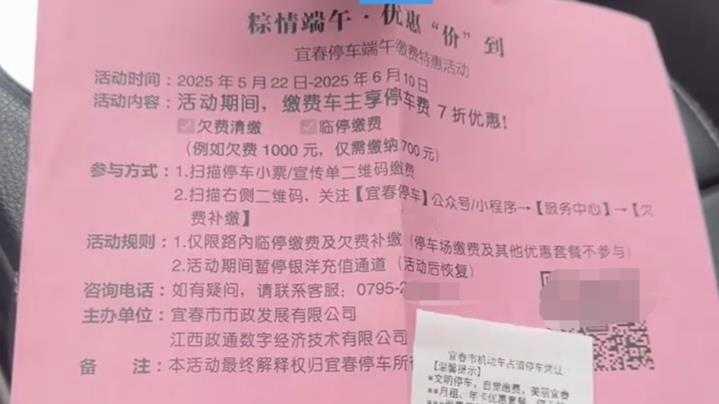 粽情端午·优惠“价”到
宜春停车端午缴费特惠活动
活动时间：2025年5月22日-2025年6月10日
活动内容：活动期间，缴费车主享停车费7折优惠！
欠费清缴 临停缴费
（例如欠费1000元，仅需缴纳700元）
参与方式：1.扫描停车小票/宣传单二维码缴费
2.扫描右侧二维码，关注【宜春停车】公众号/小程序→【服务中心】→【欠
费补缴】
活动规则：1.仅限路内临停缴费及欠费补缴（停车场缴费及其他优惠套餐不参与）
2.活动期间暂停银洋充值通道（活动后恢复）
咨询电话：如有疑问，请联系客服：0795-2
主办单位：宜春市市政发展有限公司
江西政通数字经济技术有限公司
备 注：本活动最终解释权归宜春停车所
宜春市机动车占道停车凭证
【温馨提示】
*文明停车，自觉缴费，美丽宜春
**月租、年卡优惠套餐，